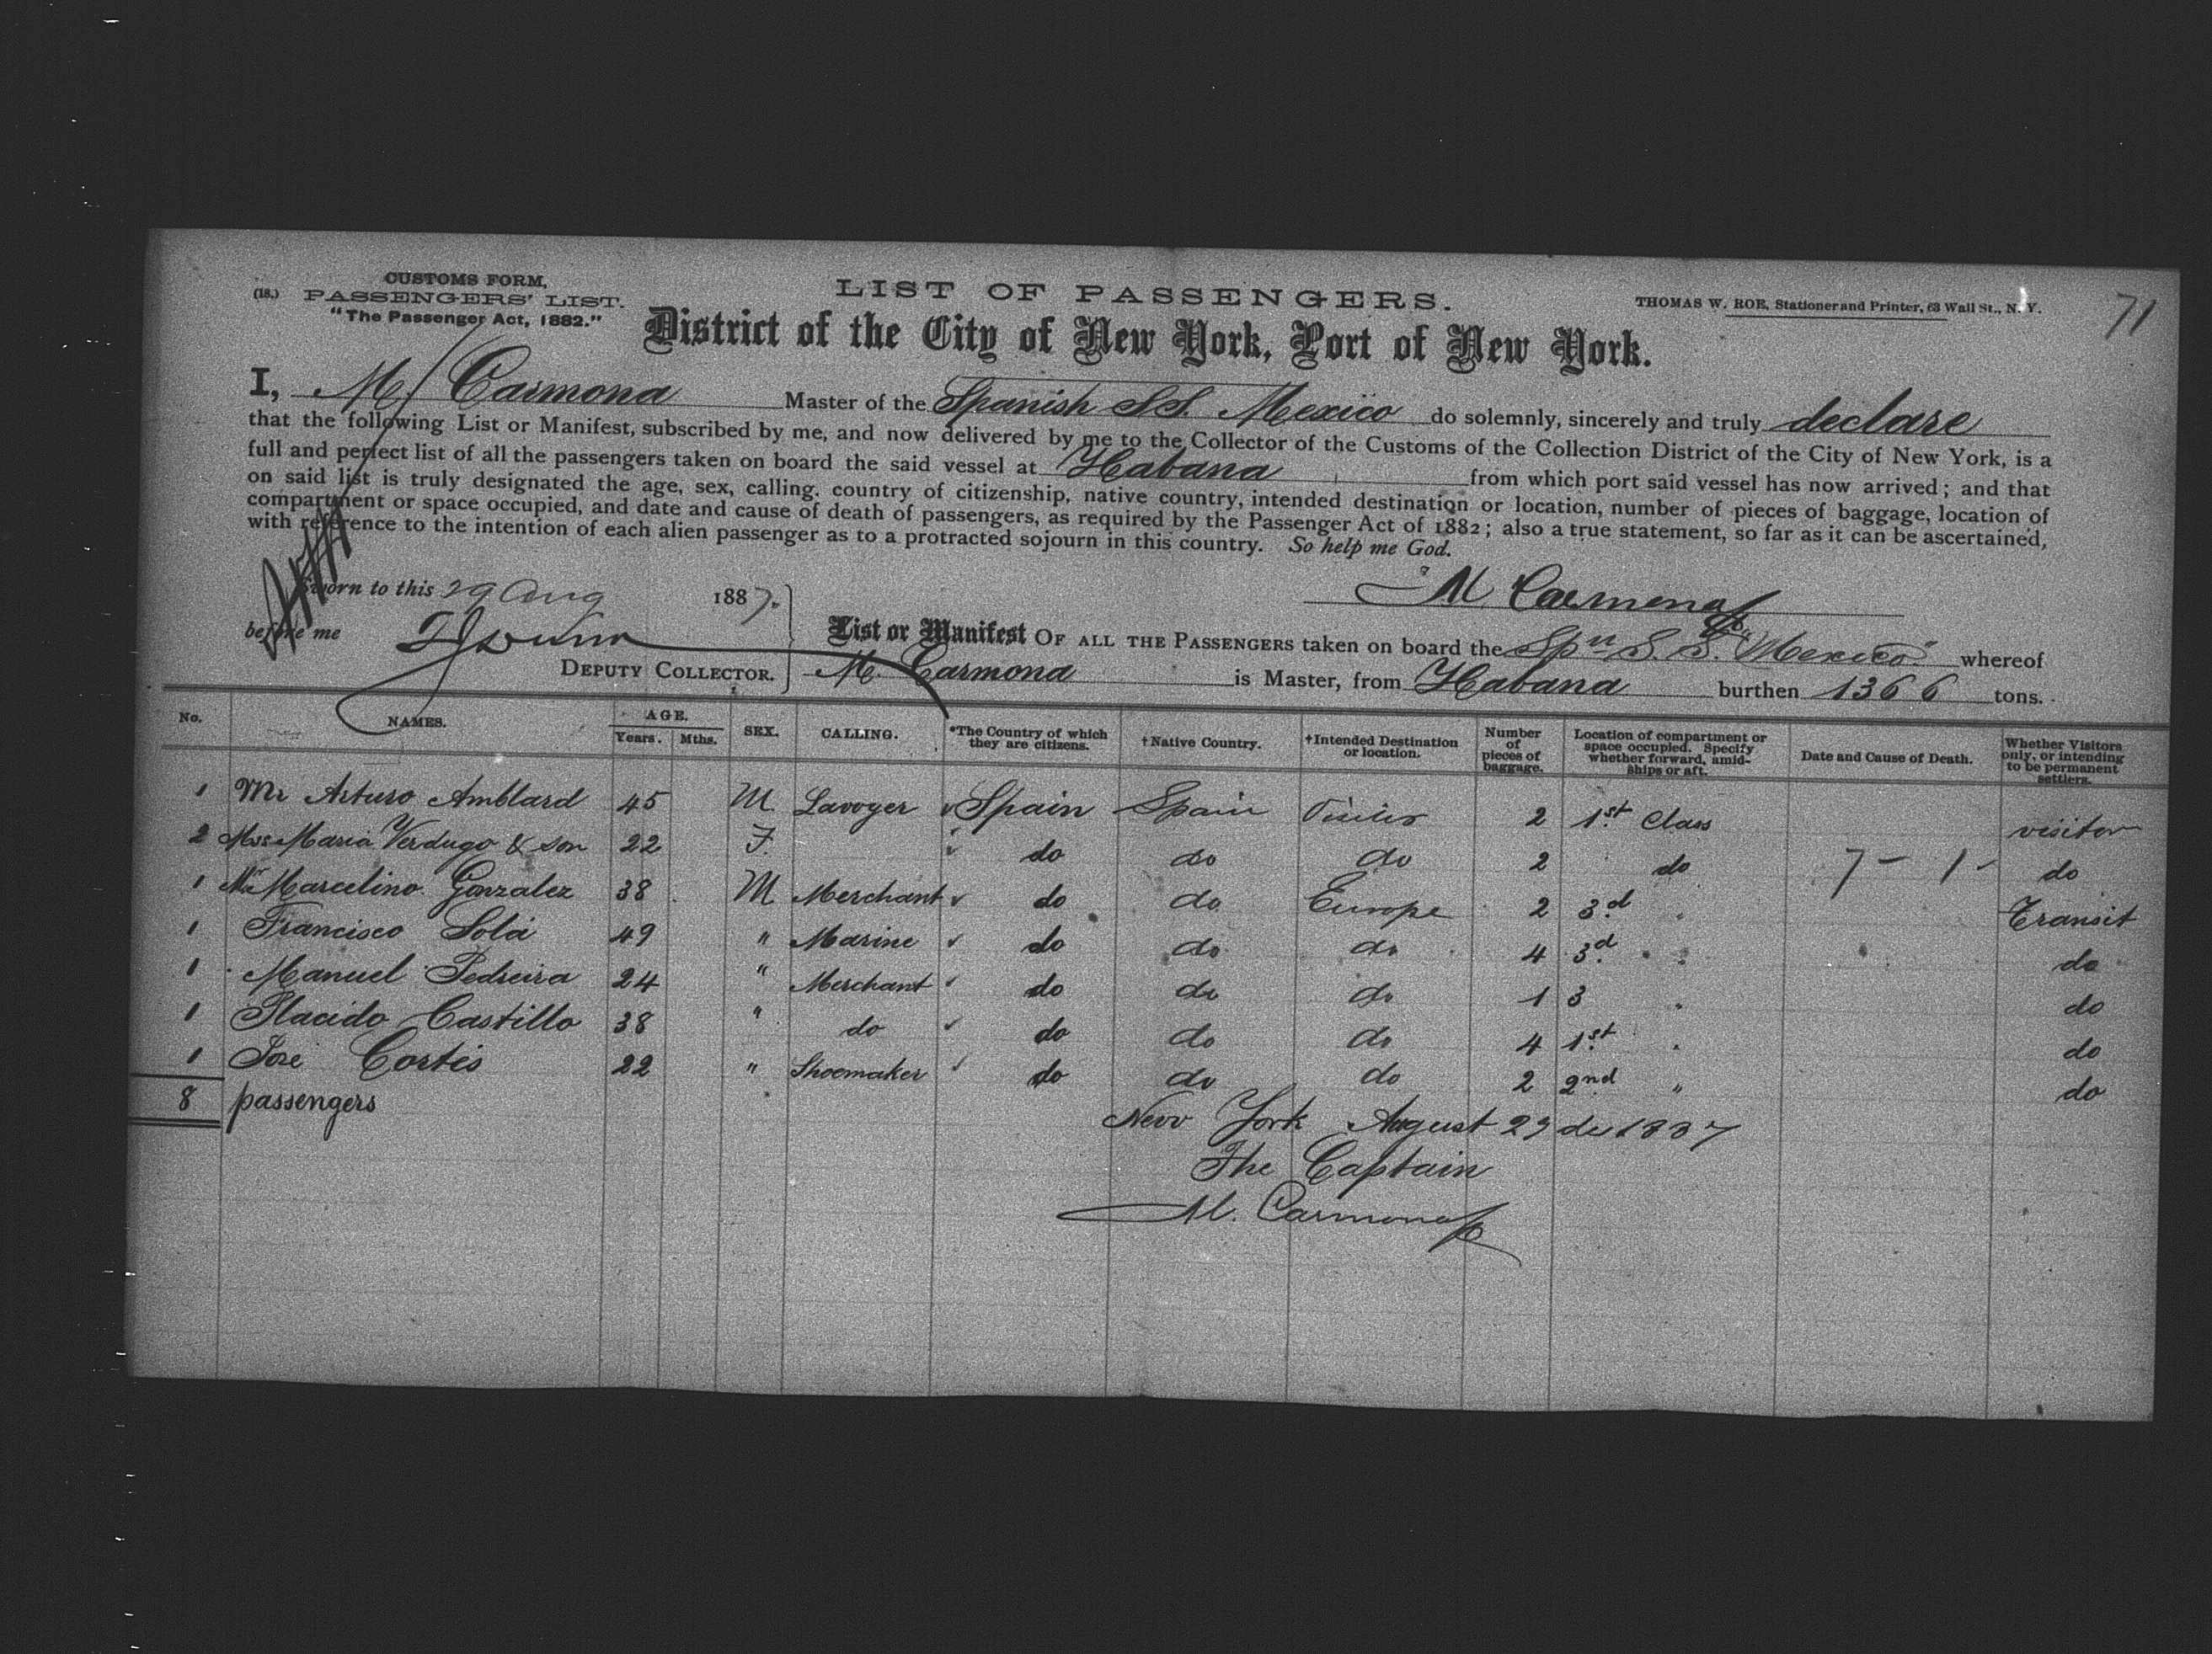 CUSTOMS FORM,
(18.) PASSENGERS' LIST.
"The Passenger Act, 1882."
LIST OF PASSENGERS.
THOMAS W. ROE, Stationer and Printer, 63 Wall St., N. Y.
71
District of the City of New York, Port of New York.
I, M. Carmona Master of the Spanish SS. Mexico do solemnly, sincerely and truly declare
that the following List or Manifest, subscribed by me, and now delivered by me to the Collector of the Customs of the Collection District of the City of New York, is a
full and perfect list of all the passengers taken on board the said vessel at Habana from which port said vessel has now arrived; and that
on said list is truly designated the age, sex, calling, country of citizenship, native country, intended destination or location, number of pieces of baggage, location of
compartment or space occupied, and date and cause of death of passengers, as required by the Passenger Act of 1882; also a true statement, so far as it can be ascertained,
with reference to the intention of each alien passenger as to a protracted sojourn in this country. So help me God.
Sworn to this 29 Aug 1887.
M. Carmona
before me
DEPUTY COLLECTOR.
List or Manifest OF ALL THE PASSENGERS taken on board the Spn S. S. "Mexico" whereof
M. Carmona is Master, from Habana burthen 1366 tons.
No. NAMES. AGE. Years. Mths. SEX. CALLING. *The Country of which they are citizens. †Native Country. †Intended Destination or location. Number of pieces of baggage. Location of compartment or space occupied. Specify whether forward, amidships or aft. Date and Cause of Death. Whether Visitors only, or intending to be permanent settlers.
1 Mr Arturo Amblard 45 M Lavoyer Spain Spain 2 1st Class visitor
2 Mss Maria Verdugo & son 22 F. do do do 2 do 7 - 1 - do
1 Mr Marcelino Gonzalez 38 M Merchant do do Europe 2 3d " Transit
1 Francisco Solá 49 " Marine do do do 4 3d " do
1 Manuel Pedreira 24 " Merchant do do do 1 3 " do
1 Placido Castillo 38 " do do do do 4 1st " do
1 José Cortis 22 " Shoemaker do do do 2 2nd " do
8 passengers
New York August 29 de 1887
The Captain
M. Carmona